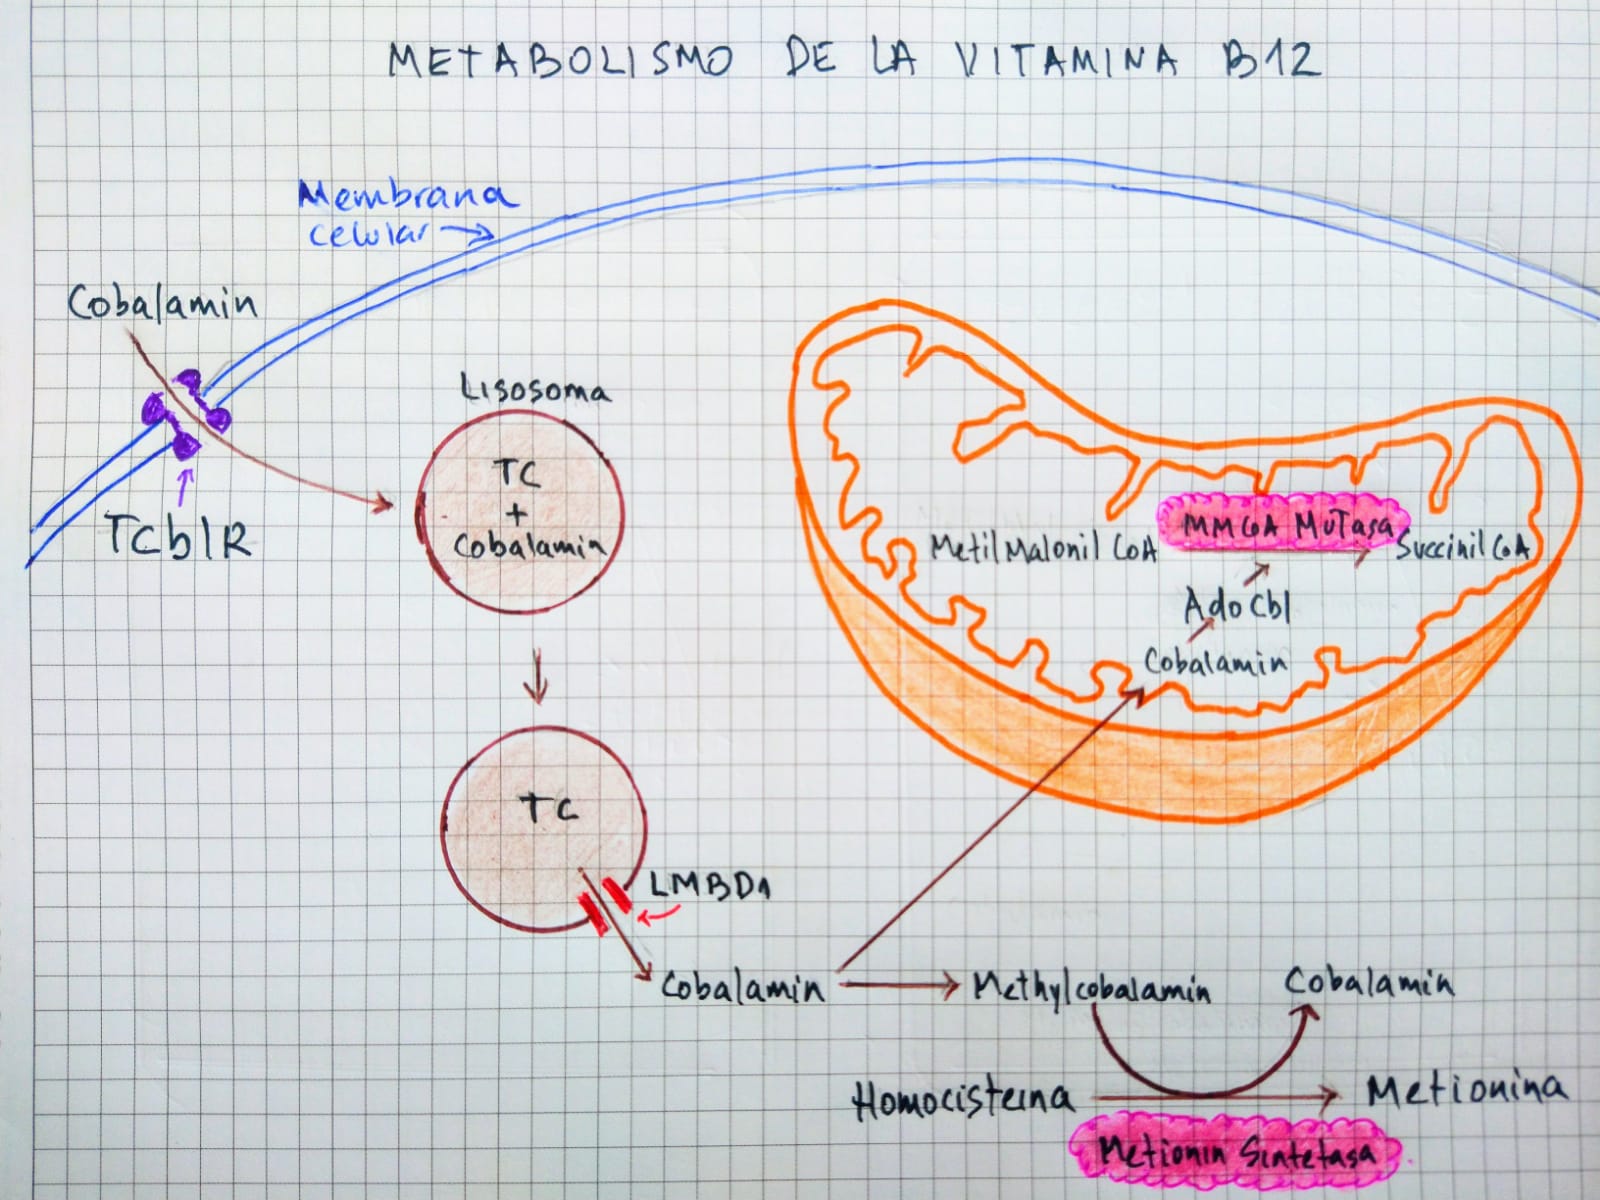 METABOLISMO DE LA VITAMINA B12
Membrana
celular
Cobalamin
TCblR
Lisosoma
TC
+
Cobalamin
TC
LMBD1
Cobalamin
MMCoA MuTasa
MetilMalonil CoA
Succinil CoA
AdoCbl
Cobalamin
Methylcobalamin
Cobalamin
Homocisteina
Metionina
Metionin Sintetasa